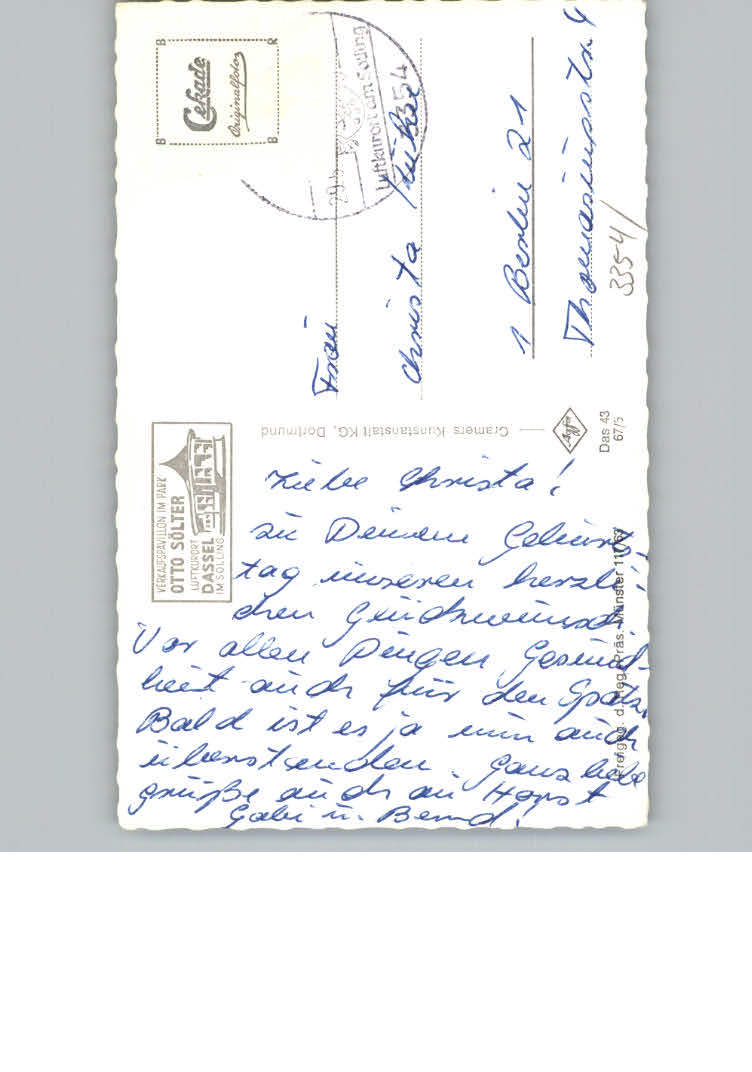 Cekade
Originalfotos
B R
B B
29.5.
Luftkurort am Solling
354
Frau
Christa
1 Berlin 21
Thomasiusstr. 4
3354/
VERKAUFSPAVILLON IM PARK
OTTO SÖLTER
LUFTKURORT
DASSEL
IM SOLLING
Cramers Kunstanstalt KG, Dortmund
Agfa
Das 43
67/5
Freigeg. d. Reg. Präs. Münster
Liebe Christa!
zu Deinem Geburts-
tag unseren herzli-
chen Glückwunsch.
Vor allen Dingen Gesund-
heit auch für den Spatz.
Bald ist es ja nun auch
überstanden. Ganz liebe
Grüße auch an Horst
Gabi u. Bernd.